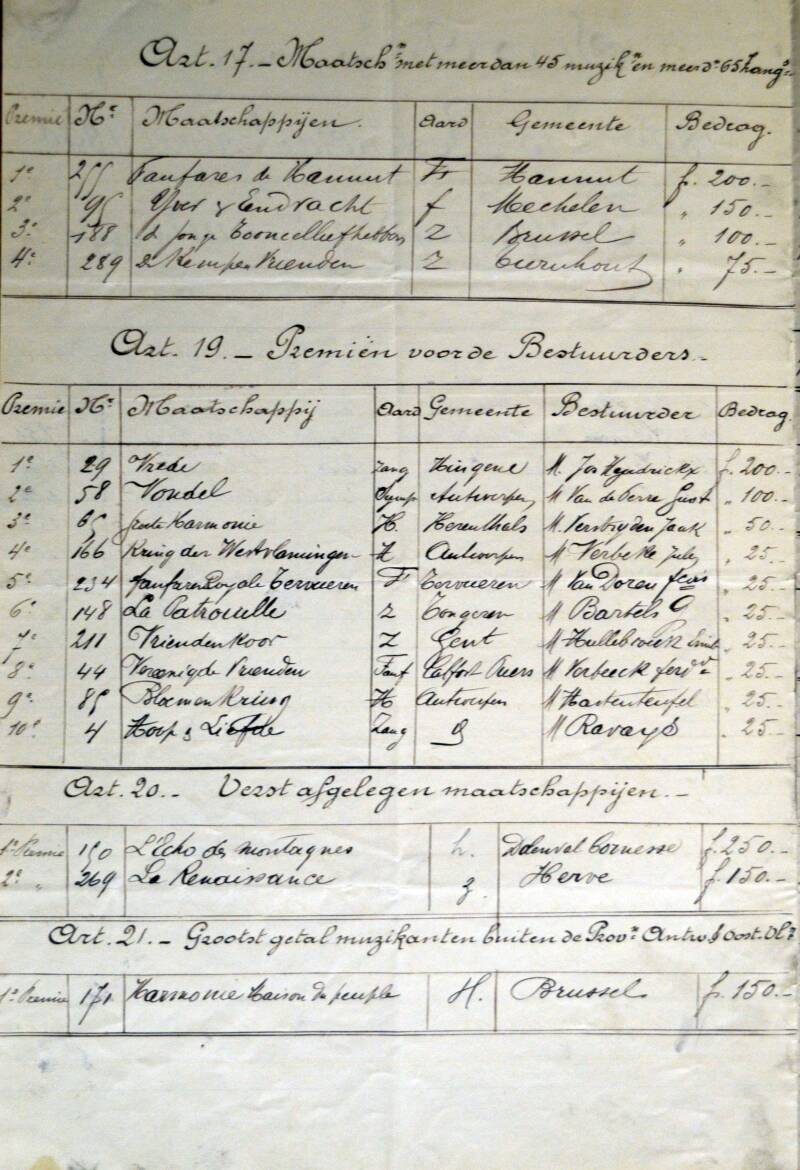 Art. 17. – Maatschn met meer dan 45 muzikn en meer dn 65 Zangrs
Premie Nr Maatschappijen. Aard Gemeente Bedrag.
1e 255 Fanfares de Hannut Fr Hannut f. 200.-
2e 95 Yver & Eendracht f Mechelen " 150.-
3e 188 de jonge Tooneelliefhebbers Z Brussel " 100.-
4e 289 De Kempen Vrienden Z Turnhout " 75.-
Art. 19. – Premiën voor de Bestuurders.-
Premie Nr Maatschappij Aard Gemeente Bestuurder Bedrag.
1e 29 Vrede Zang Hingene M. Jos Hendrickx f. 200.-
2e 58 Vondel Symp Antwerpen M Van de Perre Gust " 100.-
3e 65 Harmonie H. Herenthals M. Verstryden " 50.-
4e 166 Kring der Westvlamingen Z Antwerpen M Verbeke Jules " 25.-
5e 234 Fanfare Royale Tervueren F Tervueren M Van Doren fcois " 25.-
6e 148 La Patrouille Z Tongeren M Bartels G " 25.-
7e 211 Vriendenkoor Z Gent M Hullebroeck Emiel " 25.-
8e 44 Vereenigde Vrienden Fanf Calfort Puers M Verbeeck ferdd " 25.-
9e 85 Bloemenkring H Antwerpen M Hartenteufel " 25.-
10e 4 Hoop & Liefde Zang M Ravays " 25.-
Art. 20. – Verst afgelegen maatschappijen.-
1e Premie 150 L'Echo des montagnes h. Dolenval Cornesse f. 250.-
2e " 269 La Renaissance z. Herve f. 150.-
Art. 21. – Grootst getal muzikanten buiten de Provn Antw & Oost. Vln
1e Premie 171 Harmonie Maison du peuple H. Brussel f. 150.-